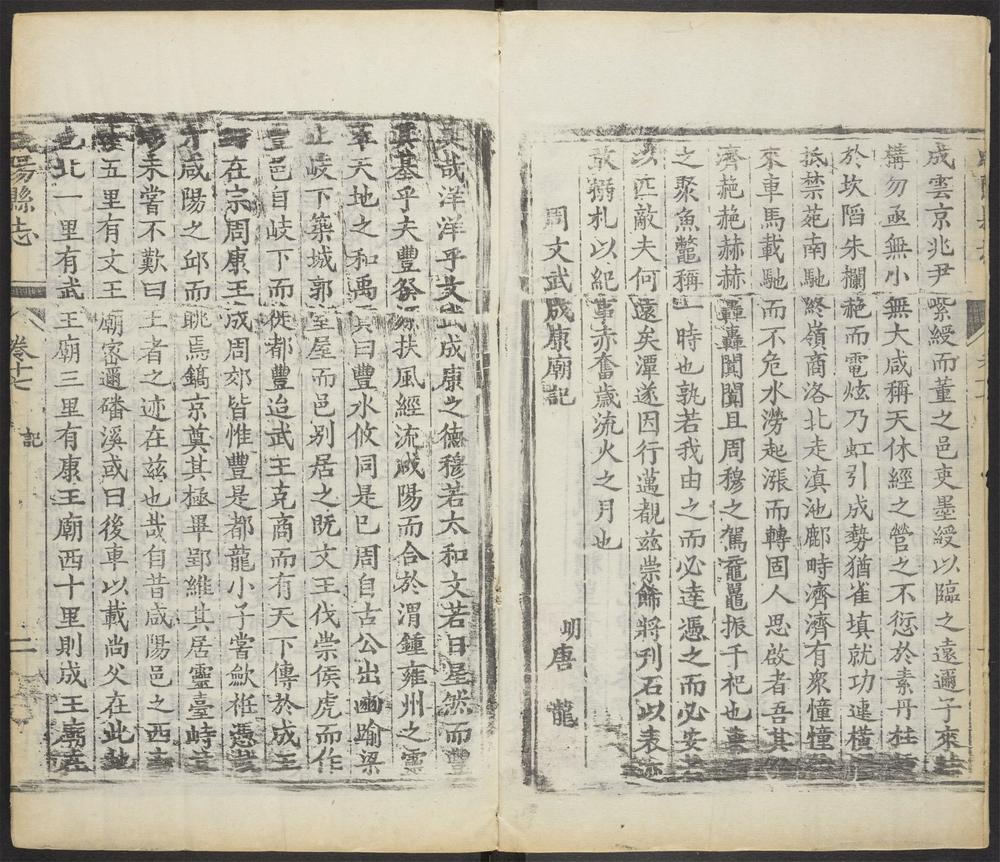 成雲京兆尹紫綬而董之邑吏墨綬以臨之遠邇子來
構勿亟無小無大咸稱天休經之營之不愆於素丹柱
於坎陷朱欄赩而電炫乃虹引成勢猶雀填就功逮橫
抵禁苑南馳終嶺商洛北走滇池鄜畤濟濟有衆憧憧
來車馬載馳而不危水澇起漲而轉固人思啟者吾其
濟赩赩赫赫轟轟闐闐且周穆之駕黿鼉振千祀也
之聚魚鼈稱一時也孰若我由之而必達憑之而必安
以匹敵夫何遠矣潭遂因行邁覩兹崇飾將刋石以表
故搦札以紀事赤奮歲流火之月也
周文武成康廟記
明唐龍
哉洋洋乎文武成康之德穆若太和文若日星然而豐
其基乎夫豐發扶風經流咸陽而合於渭鍾雍州之靈
天地之和禹貢曰豐水攸同是已周自古公出豳踰梁
止岐下築城郭室屋而邑别居之既文王伐崇侯虎而作
豐邑自岐下而徙都豐迨武王克商而有天下傳於成王
在宗周康王成周郊皆惟豐是都龍小子嘗歈
咸陽之邱而眺焉鎬京奠其極畢郢維其居靈臺峙
未嘗不歎曰王者之迹在兹也哉自昔咸陽邑之西
五里有文王廟密邇磻溪或曰後車以載尚父在此
北一里有武王廟三里有康王廟西十里則成王廟在
陽縣志
卷十七
記
二